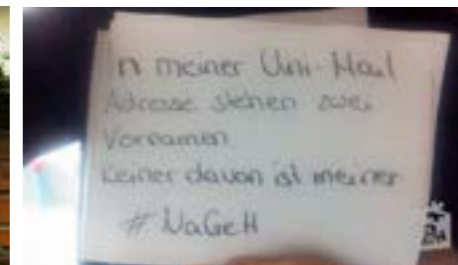 In meiner Uni-Mail
Adresse stehen zwei
Vornamen.
Keiner davon ist meiner
#NaGeH